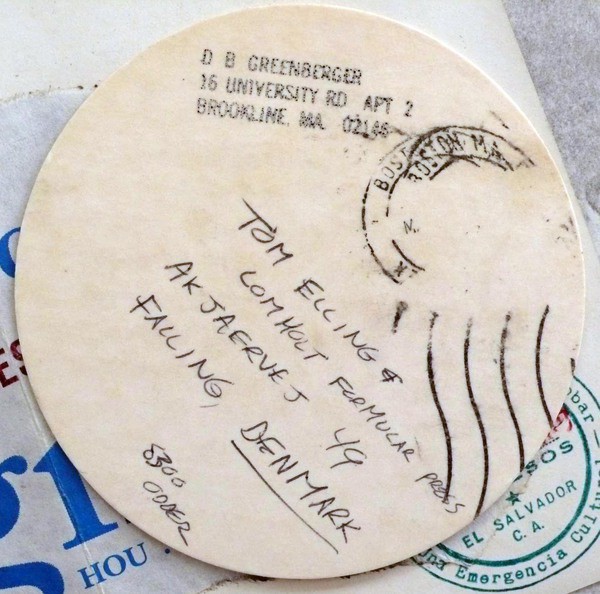 D B GREENBERGER
16 UNIVERSITY RD APT 2
BROOKLINE, MA 02146
BOSTON, MA
TOM ELLING &
LOMHOLT FORMULAR PRESS
AKJAERVEJ 49
FALLING, DENMARK
8300
ODDER
HOU
SOS
EL SALVADOR
C. A.
una Emergencia Cultural